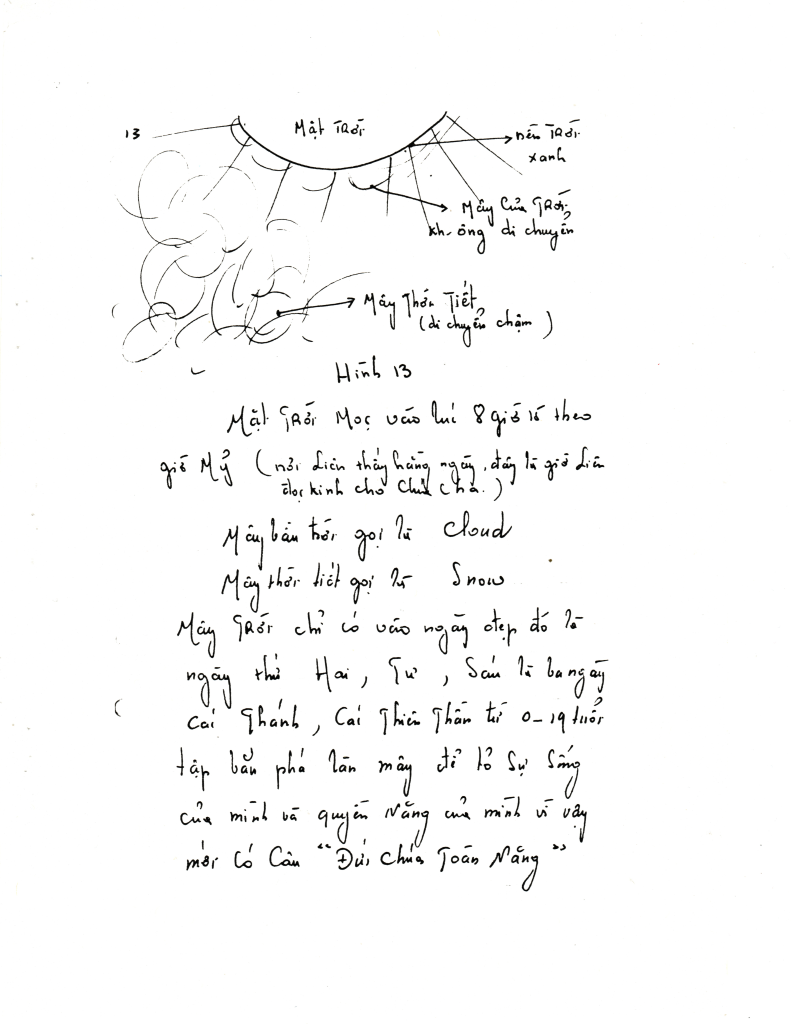 13
Mặt Trời
nền Trời
xanh
Mây Của Trời
kh-ông di chuyển
Mây Thời Tiết
(di chuyển chậm)
Hình 13
Mặt Trời Mọc vào lúc 8 giờ 15 theo
giờ Mỹ (nơi Liên thấy hằng ngày, đây là giờ Liên
đọc kinh cho Chúa Cha.)
Mây bầu trời gọi là Cloud
Mây thời tiết gọi là Snow
Mây Trời chỉ có vào ngày đẹp đó là
ngày thứ Hai, Tư, Sáu là ba ngày
Các Thánh, Các Thiên Thần từ 0-19 tuổi
tập bắn phá làn mây để tỏ Sự Sống
của mình và quyền Năng của mình vì vậy
mới Có Câu "Đức Chúa Toàn Năng"